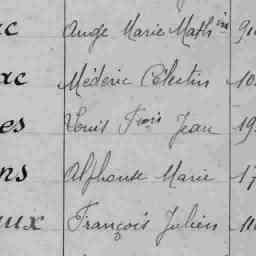 ac Ange Marie Math in 91
ac Méderic Célestin 10
es Louis Frois Jean 19
ns Alphonse Marie 17
aux François Julien 110